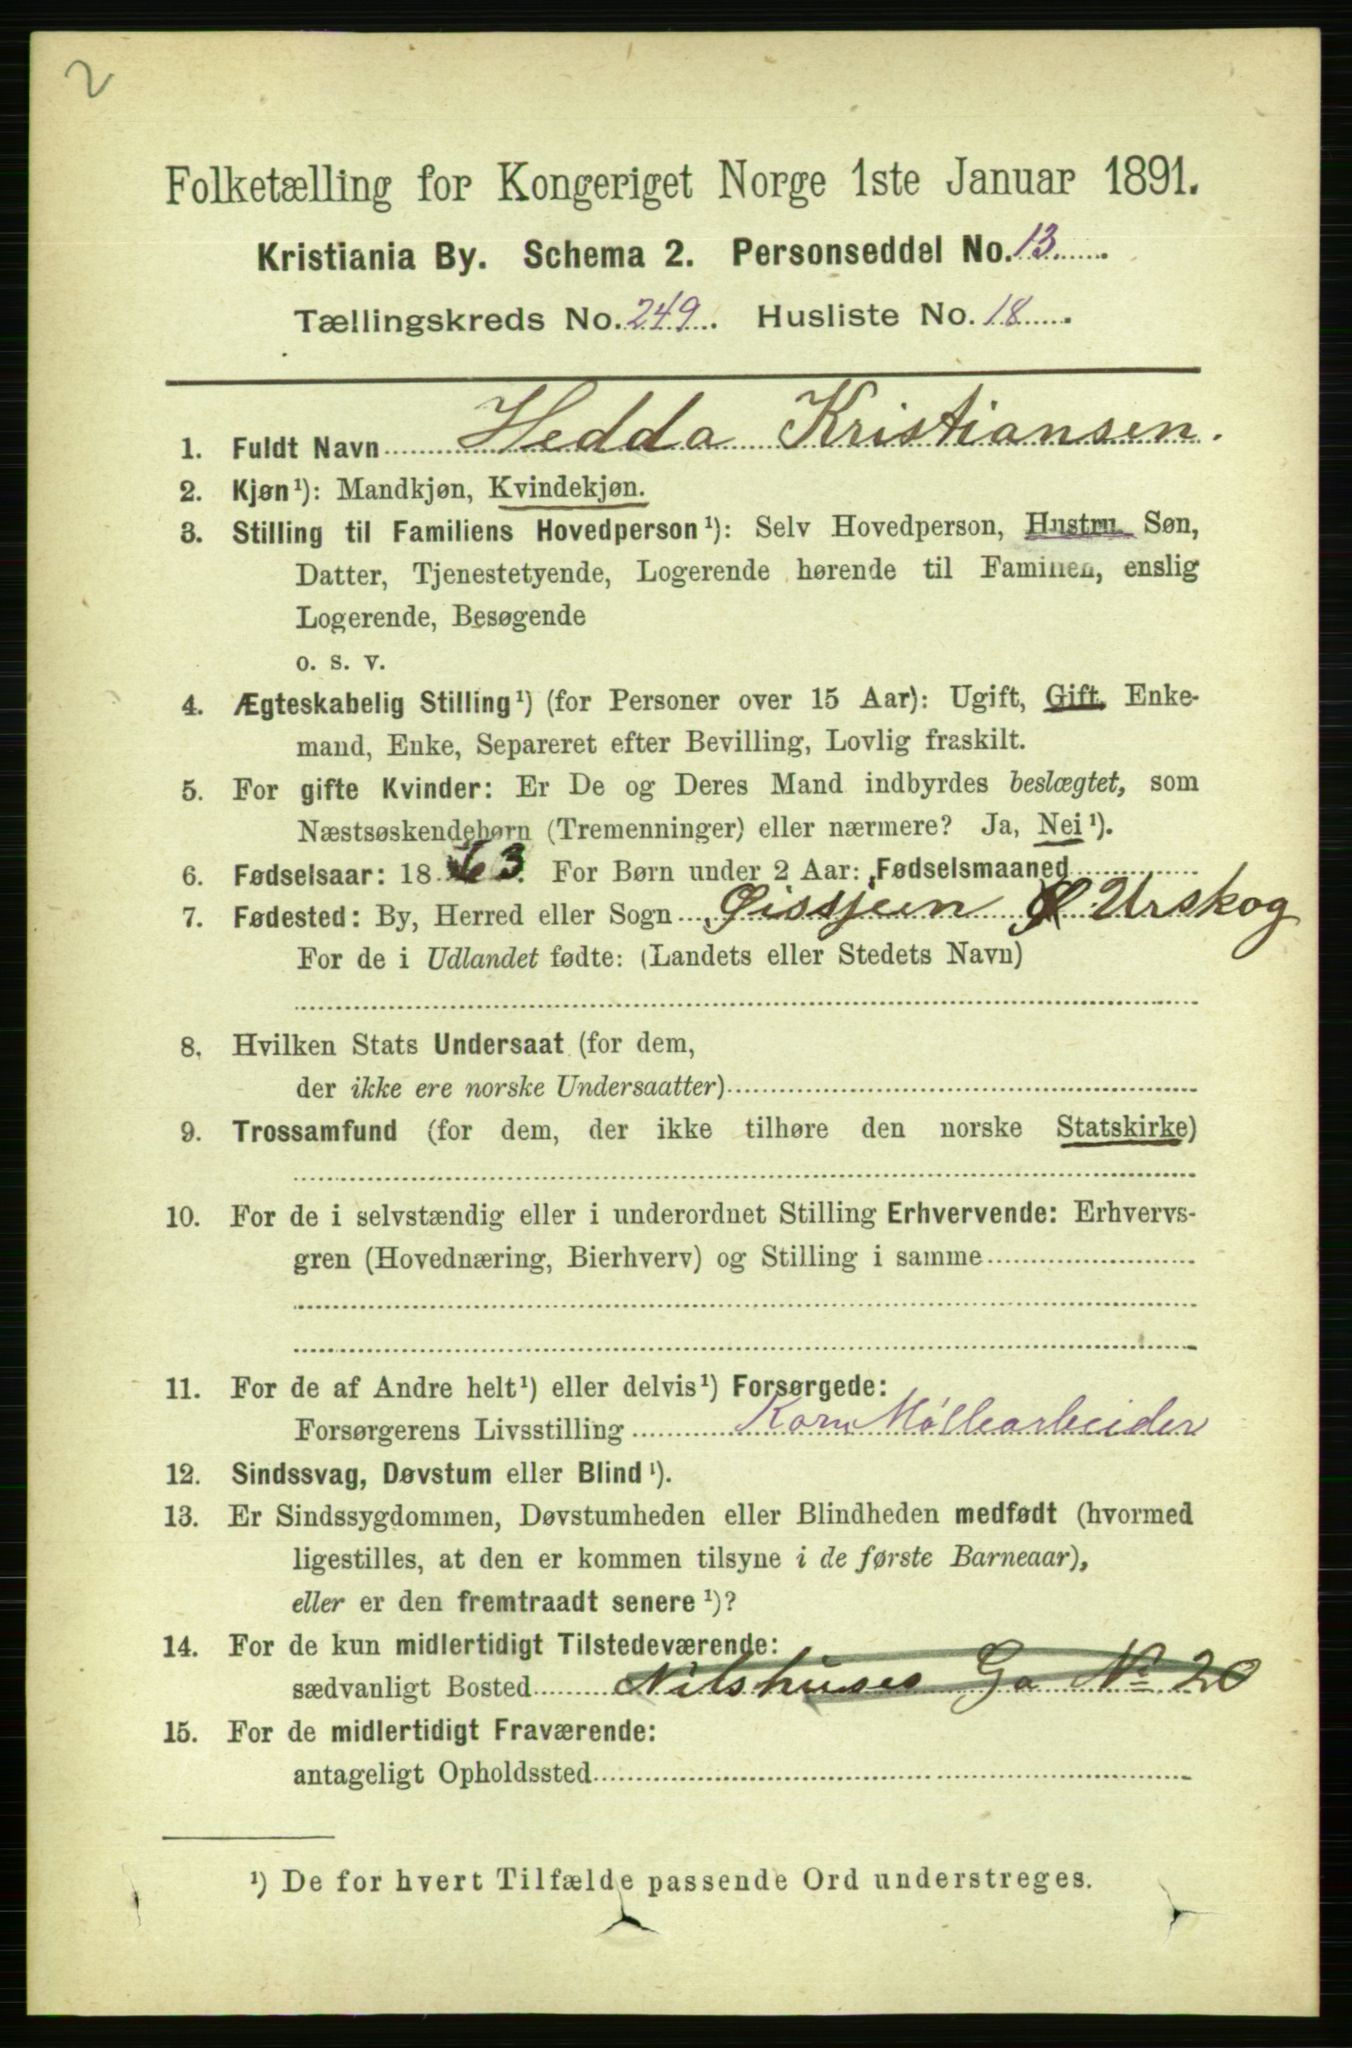 2
Folketælling for Kongeriget Norge 1ste Januar 1891.
Kristiania By. Schema 2. Personseddel No. 13
Tællingskreds No. 249. Husliste No. 18
1. Fuldt Navn Hedda Kristiansen.
2. Kjøn¹): Mandkjøn, Kvindekjøn.
3. Stilling til Familiens Hovedperson¹): Selv Hovedperson, Hustru Søn,
Datter, Tjenestetyende, Logerende hørende til Familien, enslig
Logerende, Besøgende
o. s. v.
4. Ægteskabelig Stilling¹) (for Personer over 15 Aar): Ugift, Gift, Enke-
mand, Enke, Separeret efter Bevilling, Lovlig fraskilt.
5. For gifte Kvinder: Er De og Deres Mand indbyrdes beslægtet, som
Næstsøskendebørn (Tremenninger) eller nærmere? Ja, Nei¹).
6. Fødselsaar: 1863. For Børn under 2 Aar: Fødselsmaaned
7. Fødested: By, Herred eller Sogn Urskog
For de i Udlandet fødte: (Landets eller Stedets Navn)
8. Hvilken Stats Undersaat (for dem,
der ikke ere norske Undersaatter)
9. Trossamfund (for dem, der ikke tilhøre den norske Statskirke)
10. For de i selvstændig eller i underordnet Stilling Erhvervende: Erhvervs-
gren (Hovednæring, Bierhverv) og Stilling i samme
11. For de af Andre helt¹) eller delvis¹) Forsørgede:
Forsørgerens Livsstilling Korn Møllearbeider
12. Sindssvag, Døvstum eller Blind¹).
13. Er Sindssygdommen, Døvstumheden eller Blindheden medfødt (hvormed
ligestilles, at den er kommen tilsyne i de første Barneaar),
eller er den fremtraadt senere¹)?
14. For de kun midlertidigt Tilstedeværende:
sædvanligt Bosted Nilshuses Ga No 20
15. For de midlertidigt Fraværende:
antageligt Opholdssted
¹) De for hvert Tilfælde passende Ord understreges.